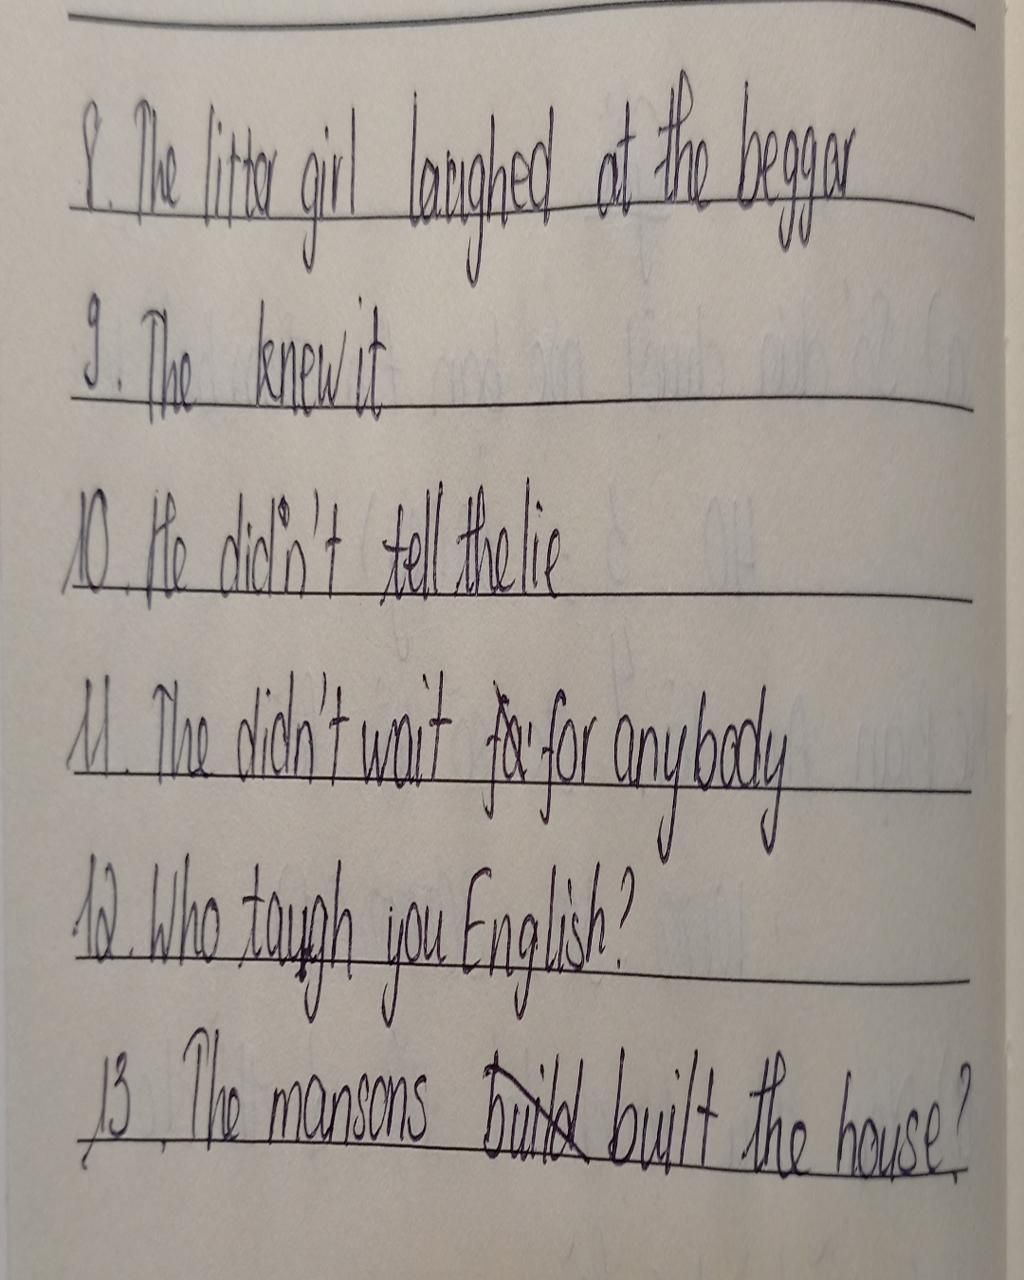 8. The litter girl laughed at the beggar
9. The knew it
10. He didn't tell the lie
11. The didn't wait for anybody
12. Who taugh you English?
13. The mansons build built the house?